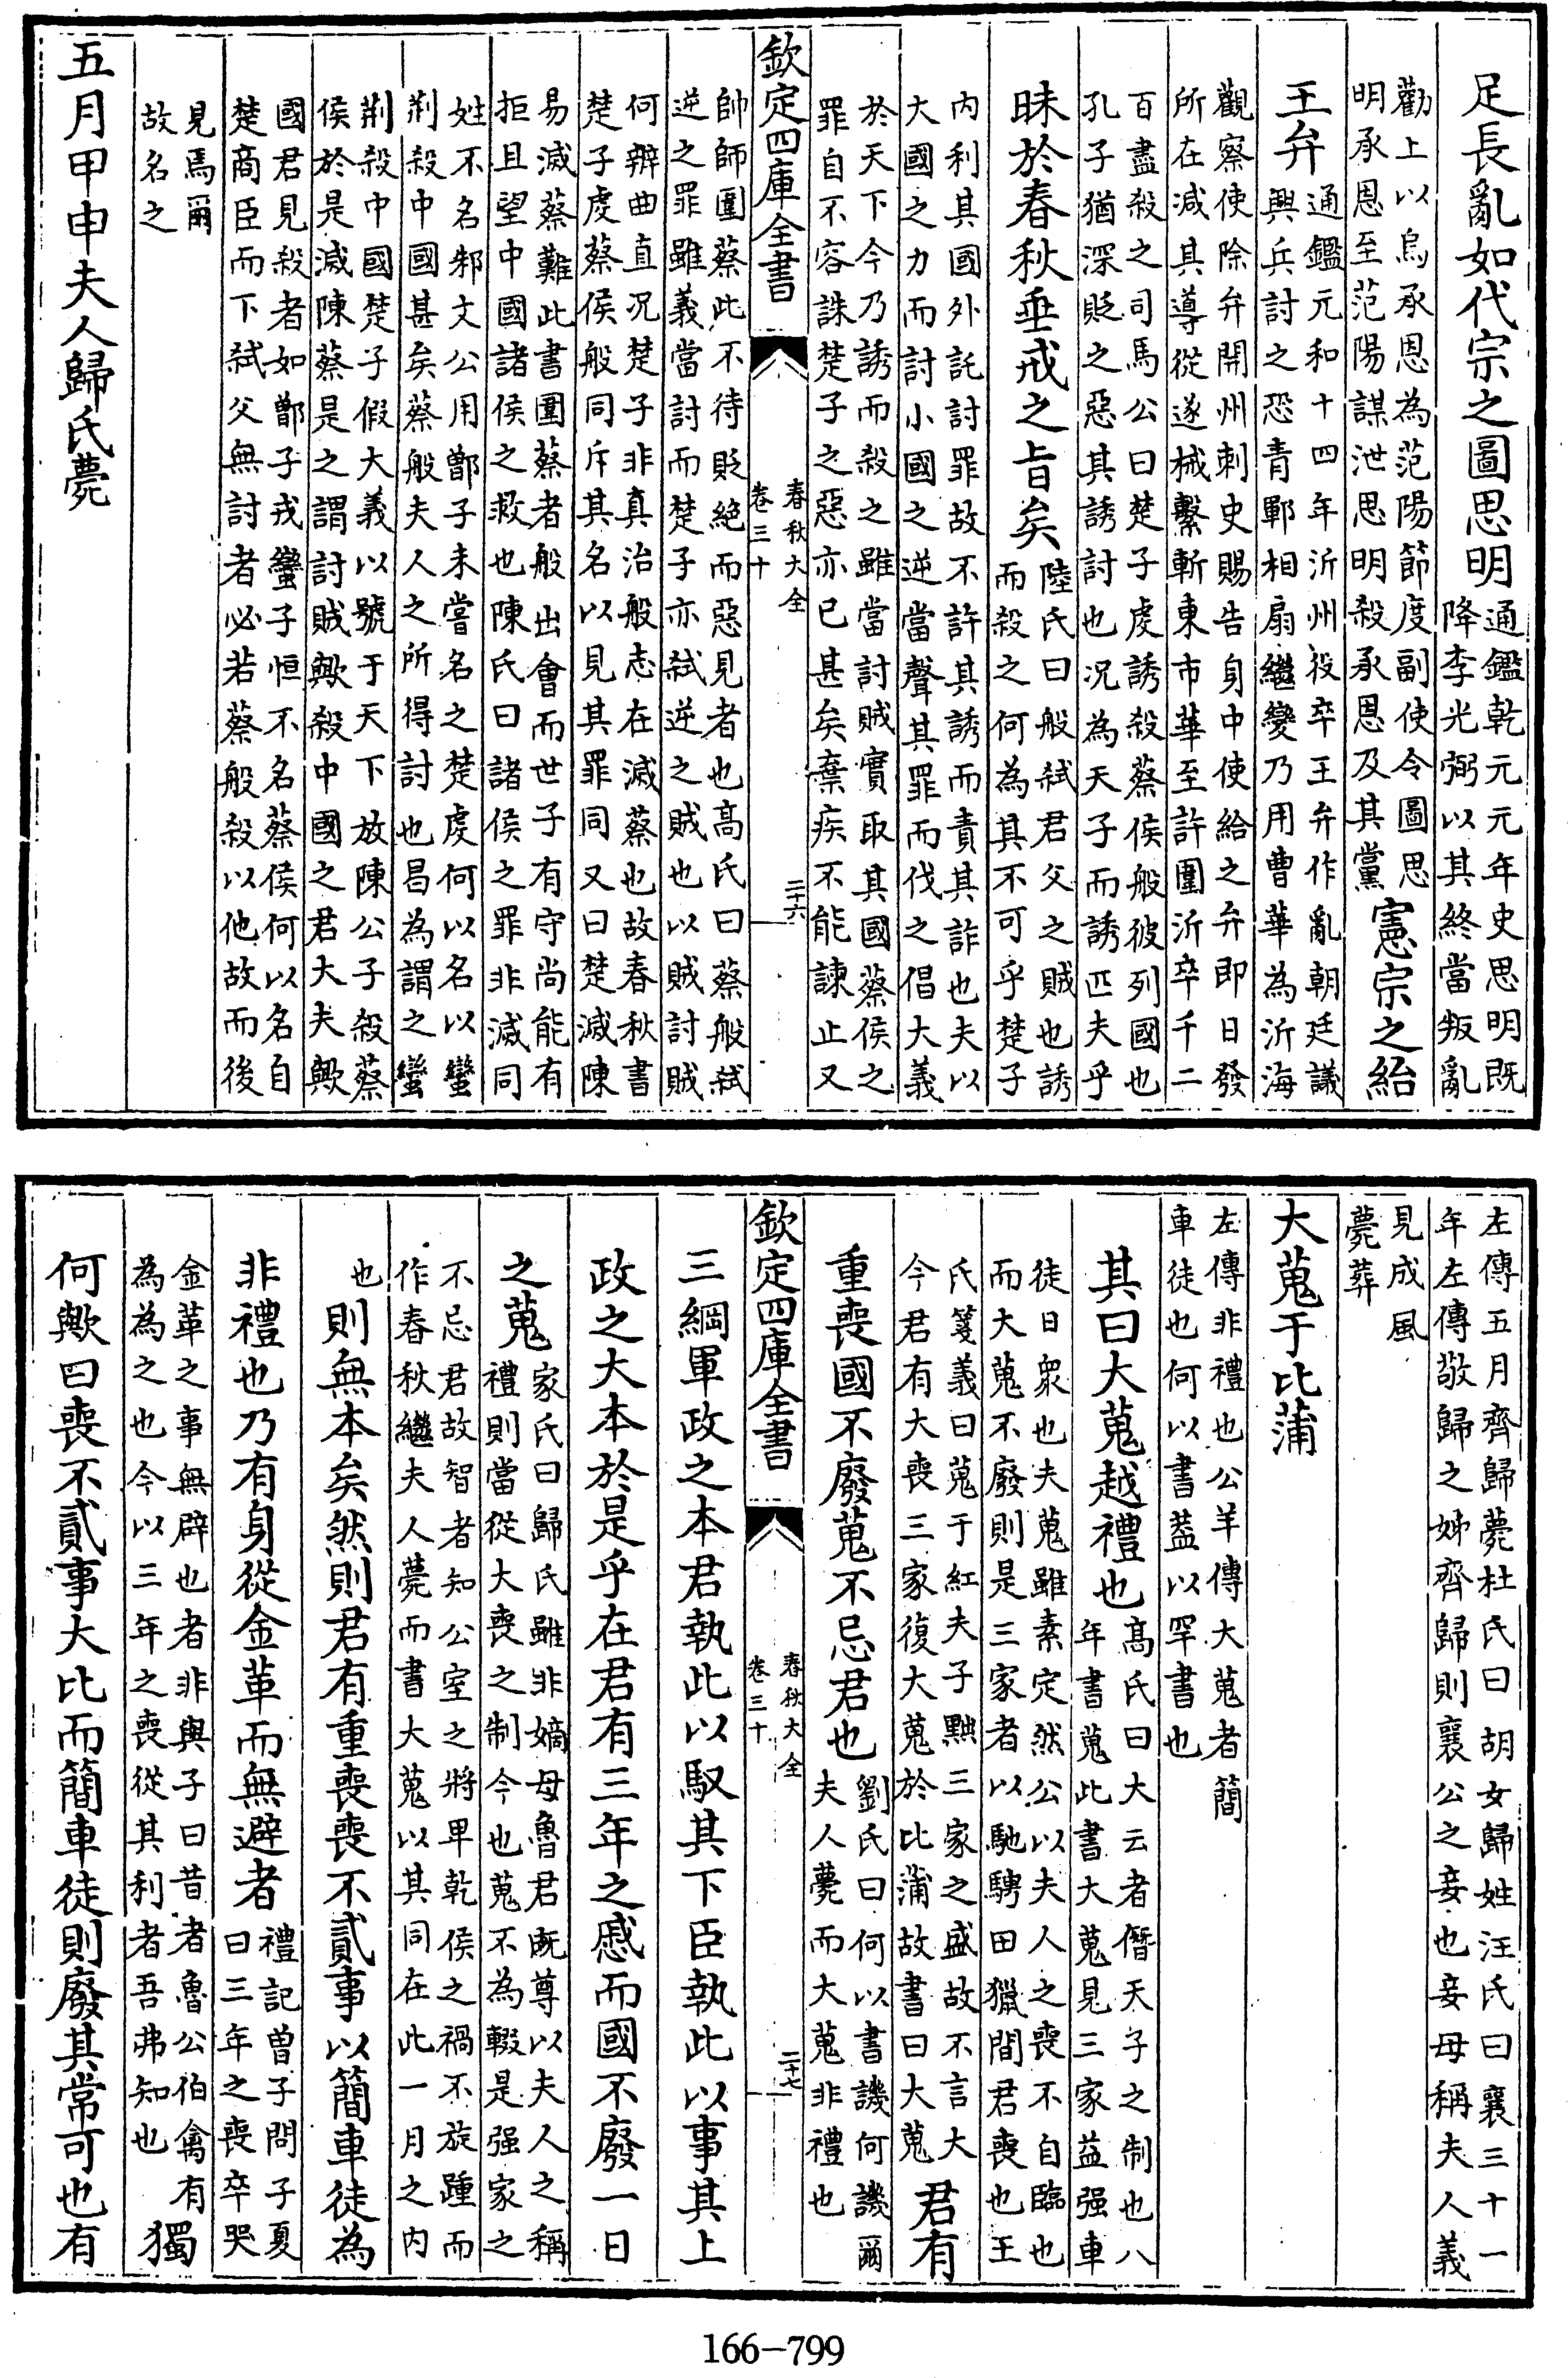 足長亂如代宗之圖思明
通鑑乾元元年史思明既
降李光弼以其終當叛亂
勸上以烏承恩為范陽節度副使令圖思
明承恩至范陽謀泄思明殺承恩及其黨
憲宗之紿
王弁
通鑑元和十四年沂州役卒王弁作亂朝廷議
興兵討之恐青鄆相扇繼變乃用曹華為沂海
觀察使除弁開州刺史賜告身中使給之弁即日發
所在減其導從遂械繫斬東市華至許圍沂卒千二
百盡殺之司馬公曰楚子䖍誘殺蔡侯般彼列國也
孔子猶深貶之惡其誘討也況為天子而誘匹夫乎
昧於春秋垂戒之旨矣
陸氏曰般弑君父之賊也誘
而殺之何為其不可乎楚子
内利其國外託討罪故不許其誘而責其詐也夫以
大國之力而討小國之逆當聲其罪而伐之倡大義
於天下今乃誘而殺之雖當討賊實取其國蔡侯之
罪自不容誅楚子之惡亦已甚矣棄疾不能諫止又
欽定四庫全書
春秋大全
卷三十
二十六
帥師圍蔡此不待貶絶而惡見者也高氏曰蔡般弑
逆之罪雖義當討而楚子亦弑逆之賊也以賊討賊
何辨曲直況楚子非真治般志在滅蔡也故春秋書
楚子䖍蔡侯般同斥其名以見其罪同又曰楚滅陳
易滅蔡難此書圍蔡者般出會而世子有守尚能有
拒且望中國諸侯之救也陳氏曰諸侯之罪非滅同
姓不名邾文公用鄫子未嘗名之楚䖍何以名以蠻
荆殺中國甚矣蔡般夫人之所得討也曷為謂之蠻
荆殺中國楚子假大義以號于天下放陳公子殺蔡
侯於是滅陳蔡是之謂討賊歟殺中國之君大夫歟
國君見殺者如鄫子戎蠻子恒不名蔡侯何以名自
楚商臣而下弑父無討者必若蔡般殺以他故而後
見焉爾
故名之
五月甲申夫人歸氏薨
左傳五月齊歸薨杜氏曰胡女歸姓汪氏曰襄三十一
年左傳敬歸之娣齊歸則襄公之妾也妾母稱夫人義
見成風
薨葬
大蒐于比蒲
左傳非禮也公羊傳大蒐者簡
車徒也何以書葢以罕書也
其曰大蒐越禮也
高氏曰大云者僭天子之制也八
年書蒐此書大蒐見三家益强車
徒日衆也夫蒐雖素定然公以夫人之喪不自臨也
而大蒐不廢則是三家者以馳騁田獵間君喪也王
氏箋義曰蒐于紅夫子黜三家之盛故不言大
今君有大喪三家復大蒐於比蒲故書曰大蒐
君有
重喪國不廢蒐不忌君也
劉氏曰何以書譏何譏爾
夫人薨而大蒐非禮也
欽定四庫全書
春秋大全
卷三十
二十七
三綱軍政之本君執此以馭其下臣執此以事其上
政之大本於是乎在君有三年之慼而國不廢一日
之蒐
家氏曰歸氏雖非嫡母魯君既尊以夫人之稱
禮則當從大喪之制今也蒐不為輟是强家之
不忌君故智者知公室之將卑乾侯之禍不旋踵而
作春秋繼夫人薨而書大蒐以其同在此一月之内
也
則無本矣然則君有重喪喪不貳事以簡車徒為
非禮也乃有身從金革而無避者
禮記曽子問子夏
曰三年之喪卒哭
金革之事無辟也者非與子曰昔者魯公伯禽有
為為之也今以三年之喪從其利者吾弗知也
獨
何歟曰喪不貳事大比而簡車徒則廢其常可也有
166-799